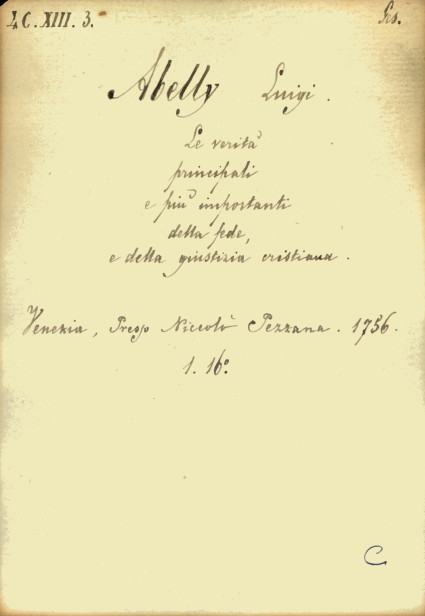 4C. XIII. 3.
Abelly Luigi.
Le verità
principali
e più importanti
della fede,
e della giustizia cristiana.
Venezia, Presso Niccolò Pezzana. 1756.
1. 16°.
C